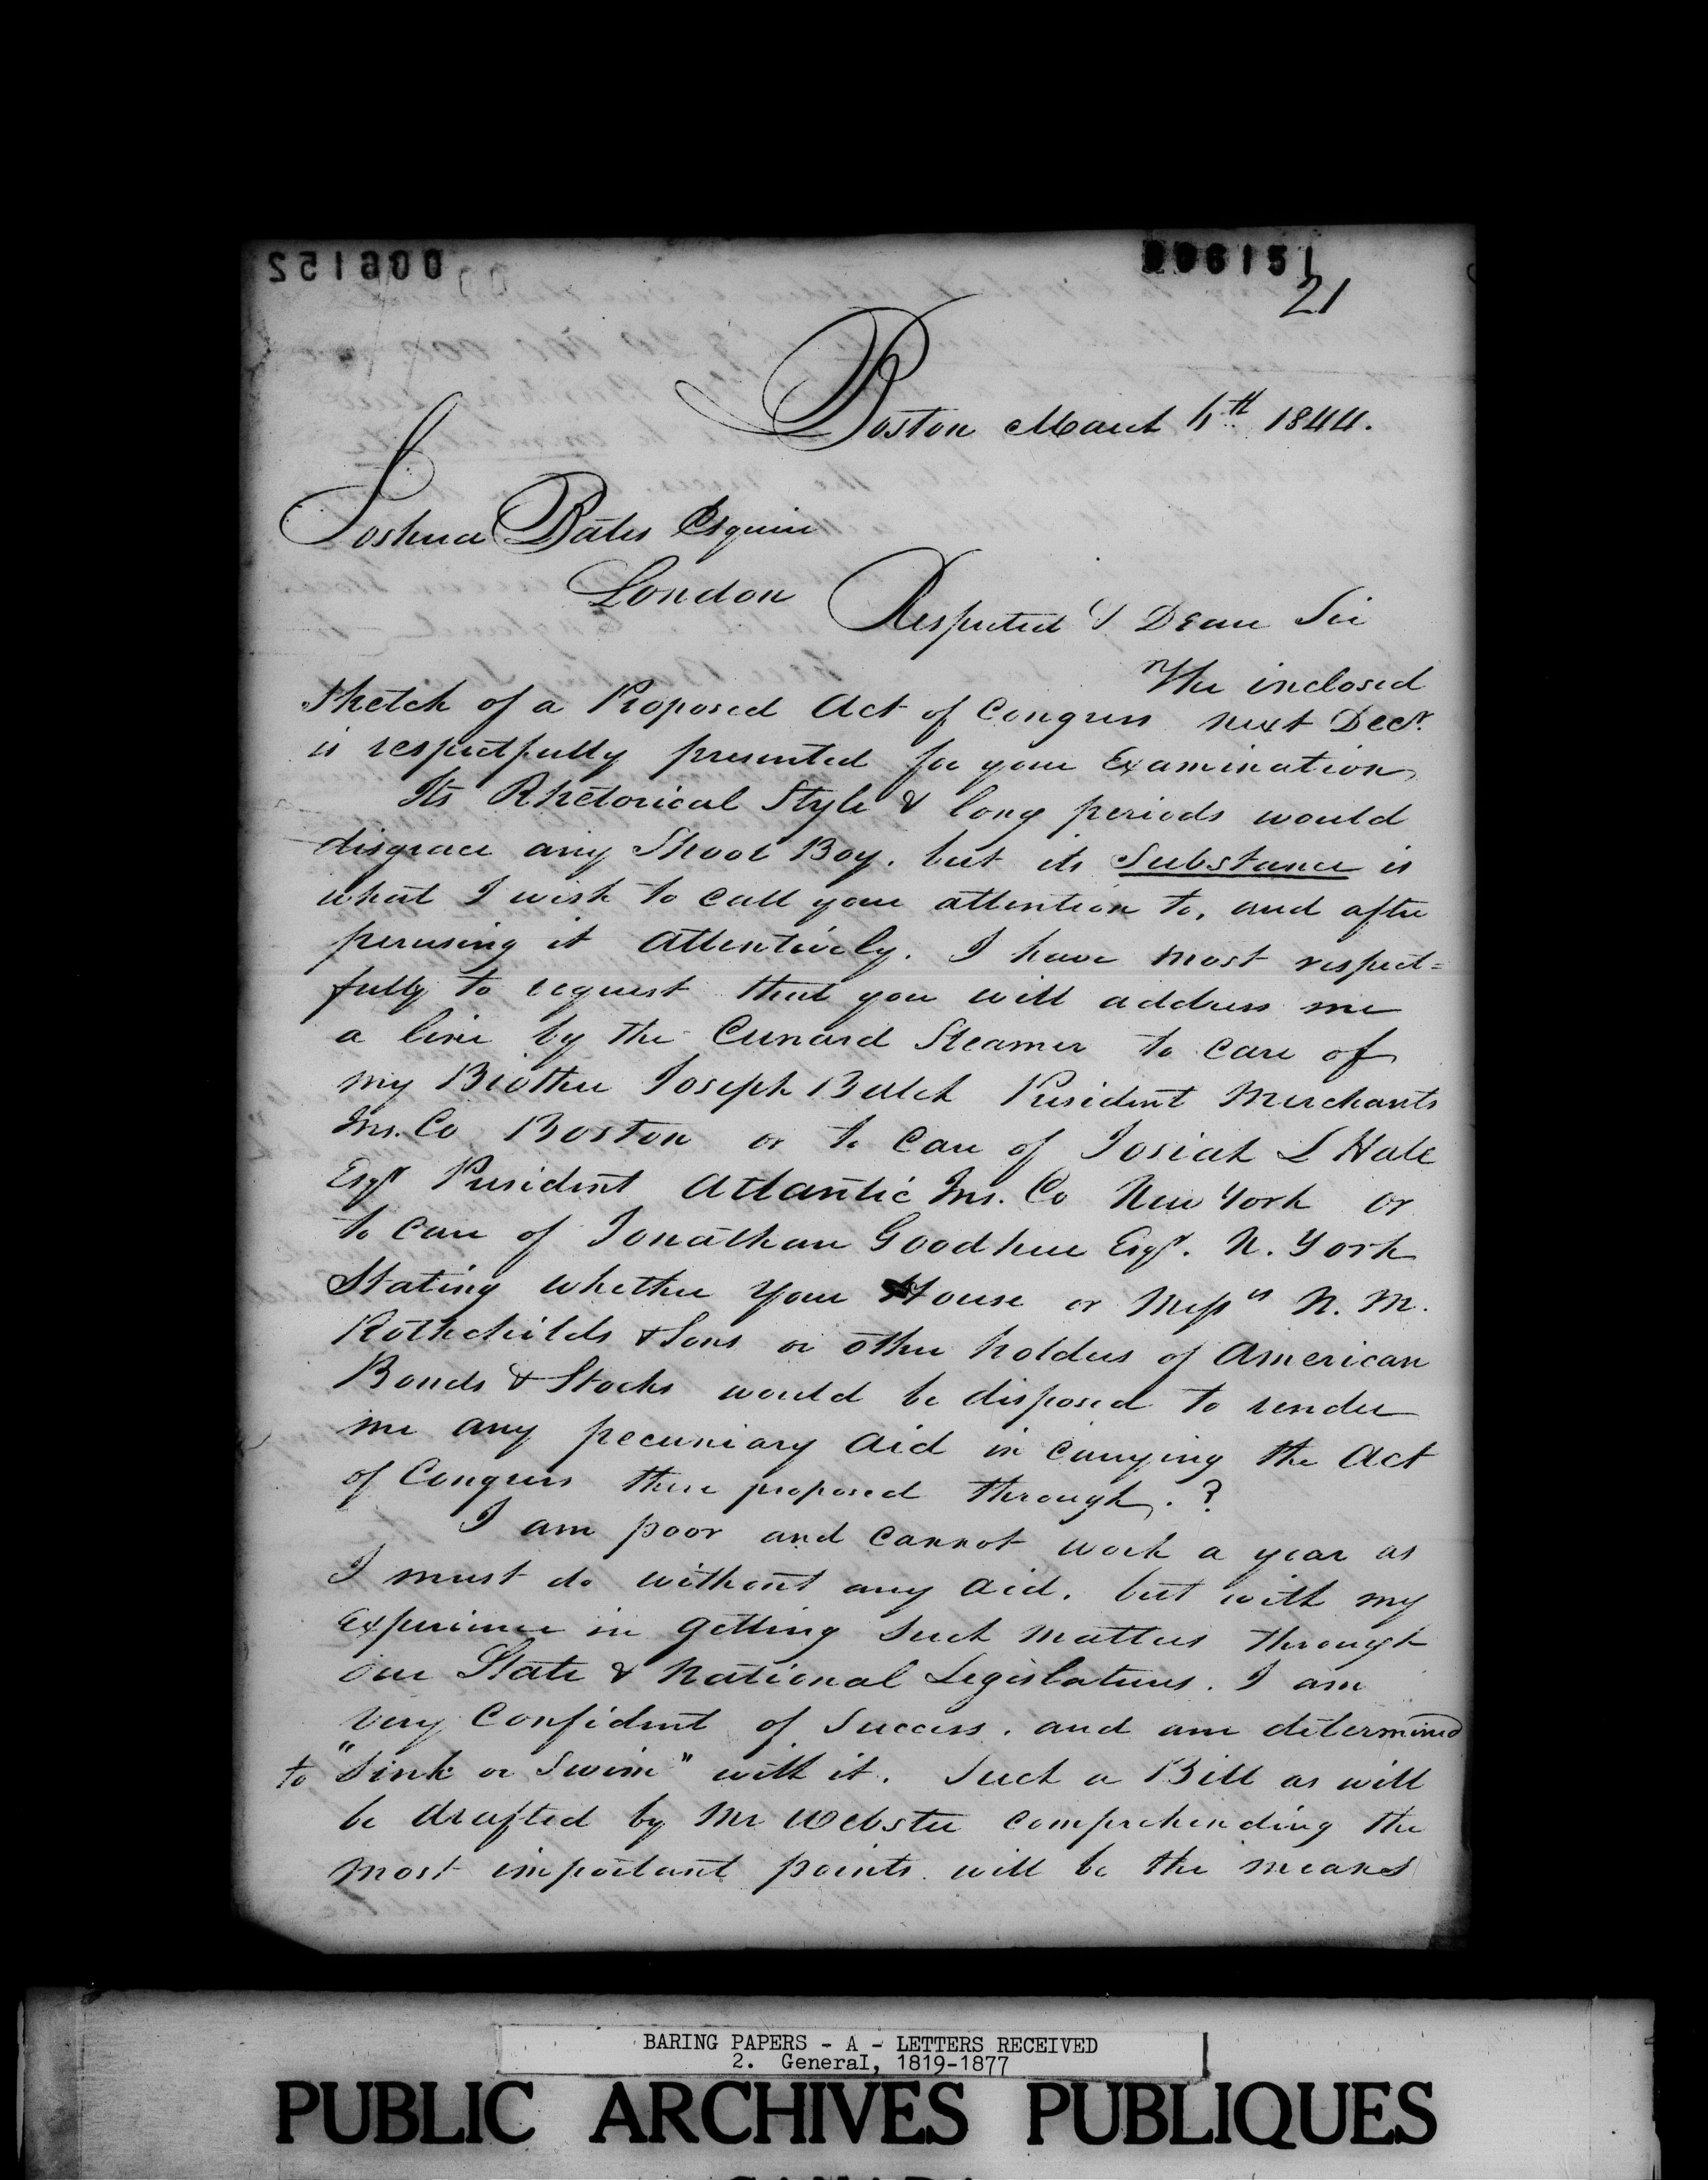 006152
006151
21
Boston March 4th 1844.
Joshua Bates Esquire
London
Respected & Dear Sir
The inclosed
Sketch of a Proposed Act of Congress next Decr.
is respectfully presented for your Examination
Its Rhetorical Style & long periods would
disgrace any School Boy. but its Substance is
what I wish to call your attention to, and after
perusing it attentively. I have most respect=
fully to request that you will address me
a line by the Cunard Steamer to care of
my Brother Joseph Balch President Merchants
Ins. Co Boston or to care of Josiah L Hale
Esqr President Atlantic Ins. Co New York or
to care of Jonathan Goodhue Esqr. N. York
Stating whether your House or Messrs N. M.
Rothchilds & Sons or other holders of American
Bonds & Stocks would be disposed to render
me any pecuniary aid in carrying the Act
of Congress there proposed through. ?
I am poor and cannot work a year as
I must do without any aid. but with my
Experience in getting such matters through
our State & National Legislatures. I am
very confident of success. and am determined
to "Sink or Swim" with it. Such a Bill as will
be drafted by Mr Webster comprehending the
most important points will be the means
BARING PAPERS - A - LETTERS RECEIVED
2. General, 1819-1877
PUBLIC ARCHIVES PUBLIQUES
CANADA